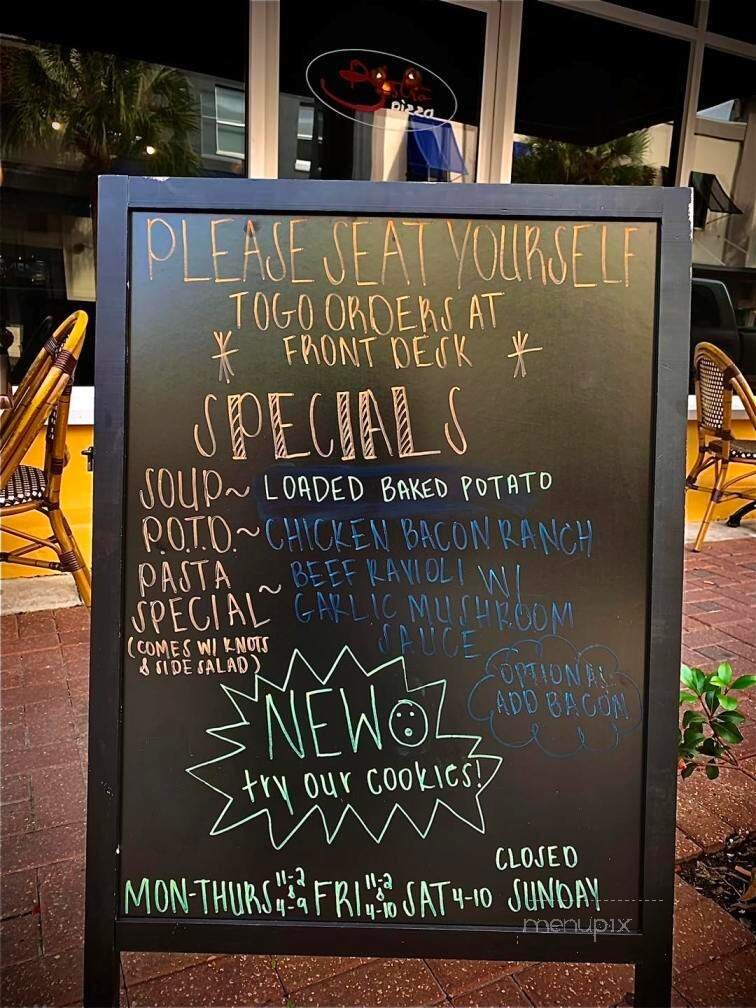 pizza
PLEASE SEAT YOURSELF
TOGO ORDERS AT
* FRONT DESK *
SPECIALS
SOUP~ LOADED BAKED POTATO
P.O.T.D.~ CHICKEN BACON RANCH
PASTA SPECIAL ~ BEEF RAVIOLI W/
GARLIC MUSHROOM
SAUCE
(COMES W/ KNOTS
& SIDE SALAD)
OPTIONAL
ADD BACON
NEW
try our cookies!
CLOSED
MON-THURS 11-2 & 4-9 FRI 11-2 & 4-10 SAT 4-10 SUNDAY
menupix